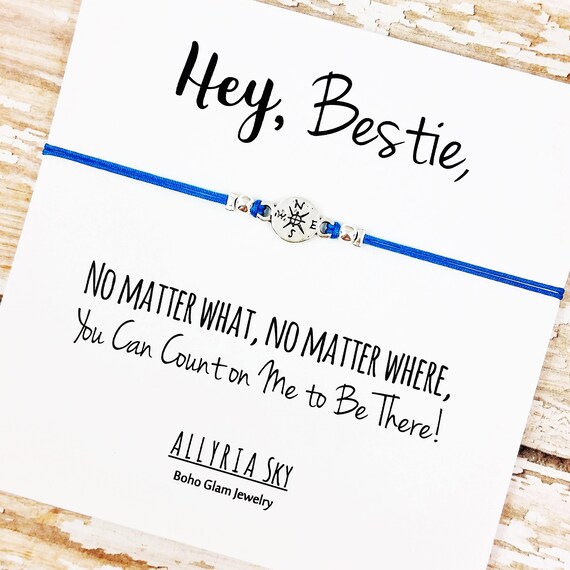 Hey, Bestie,
N
W E
S
NO MATTER WHAT, NO MATTER WHERE,
You Can Count on Me to Be There!
ALLYRIA SKY
Boho Glam Jewelry